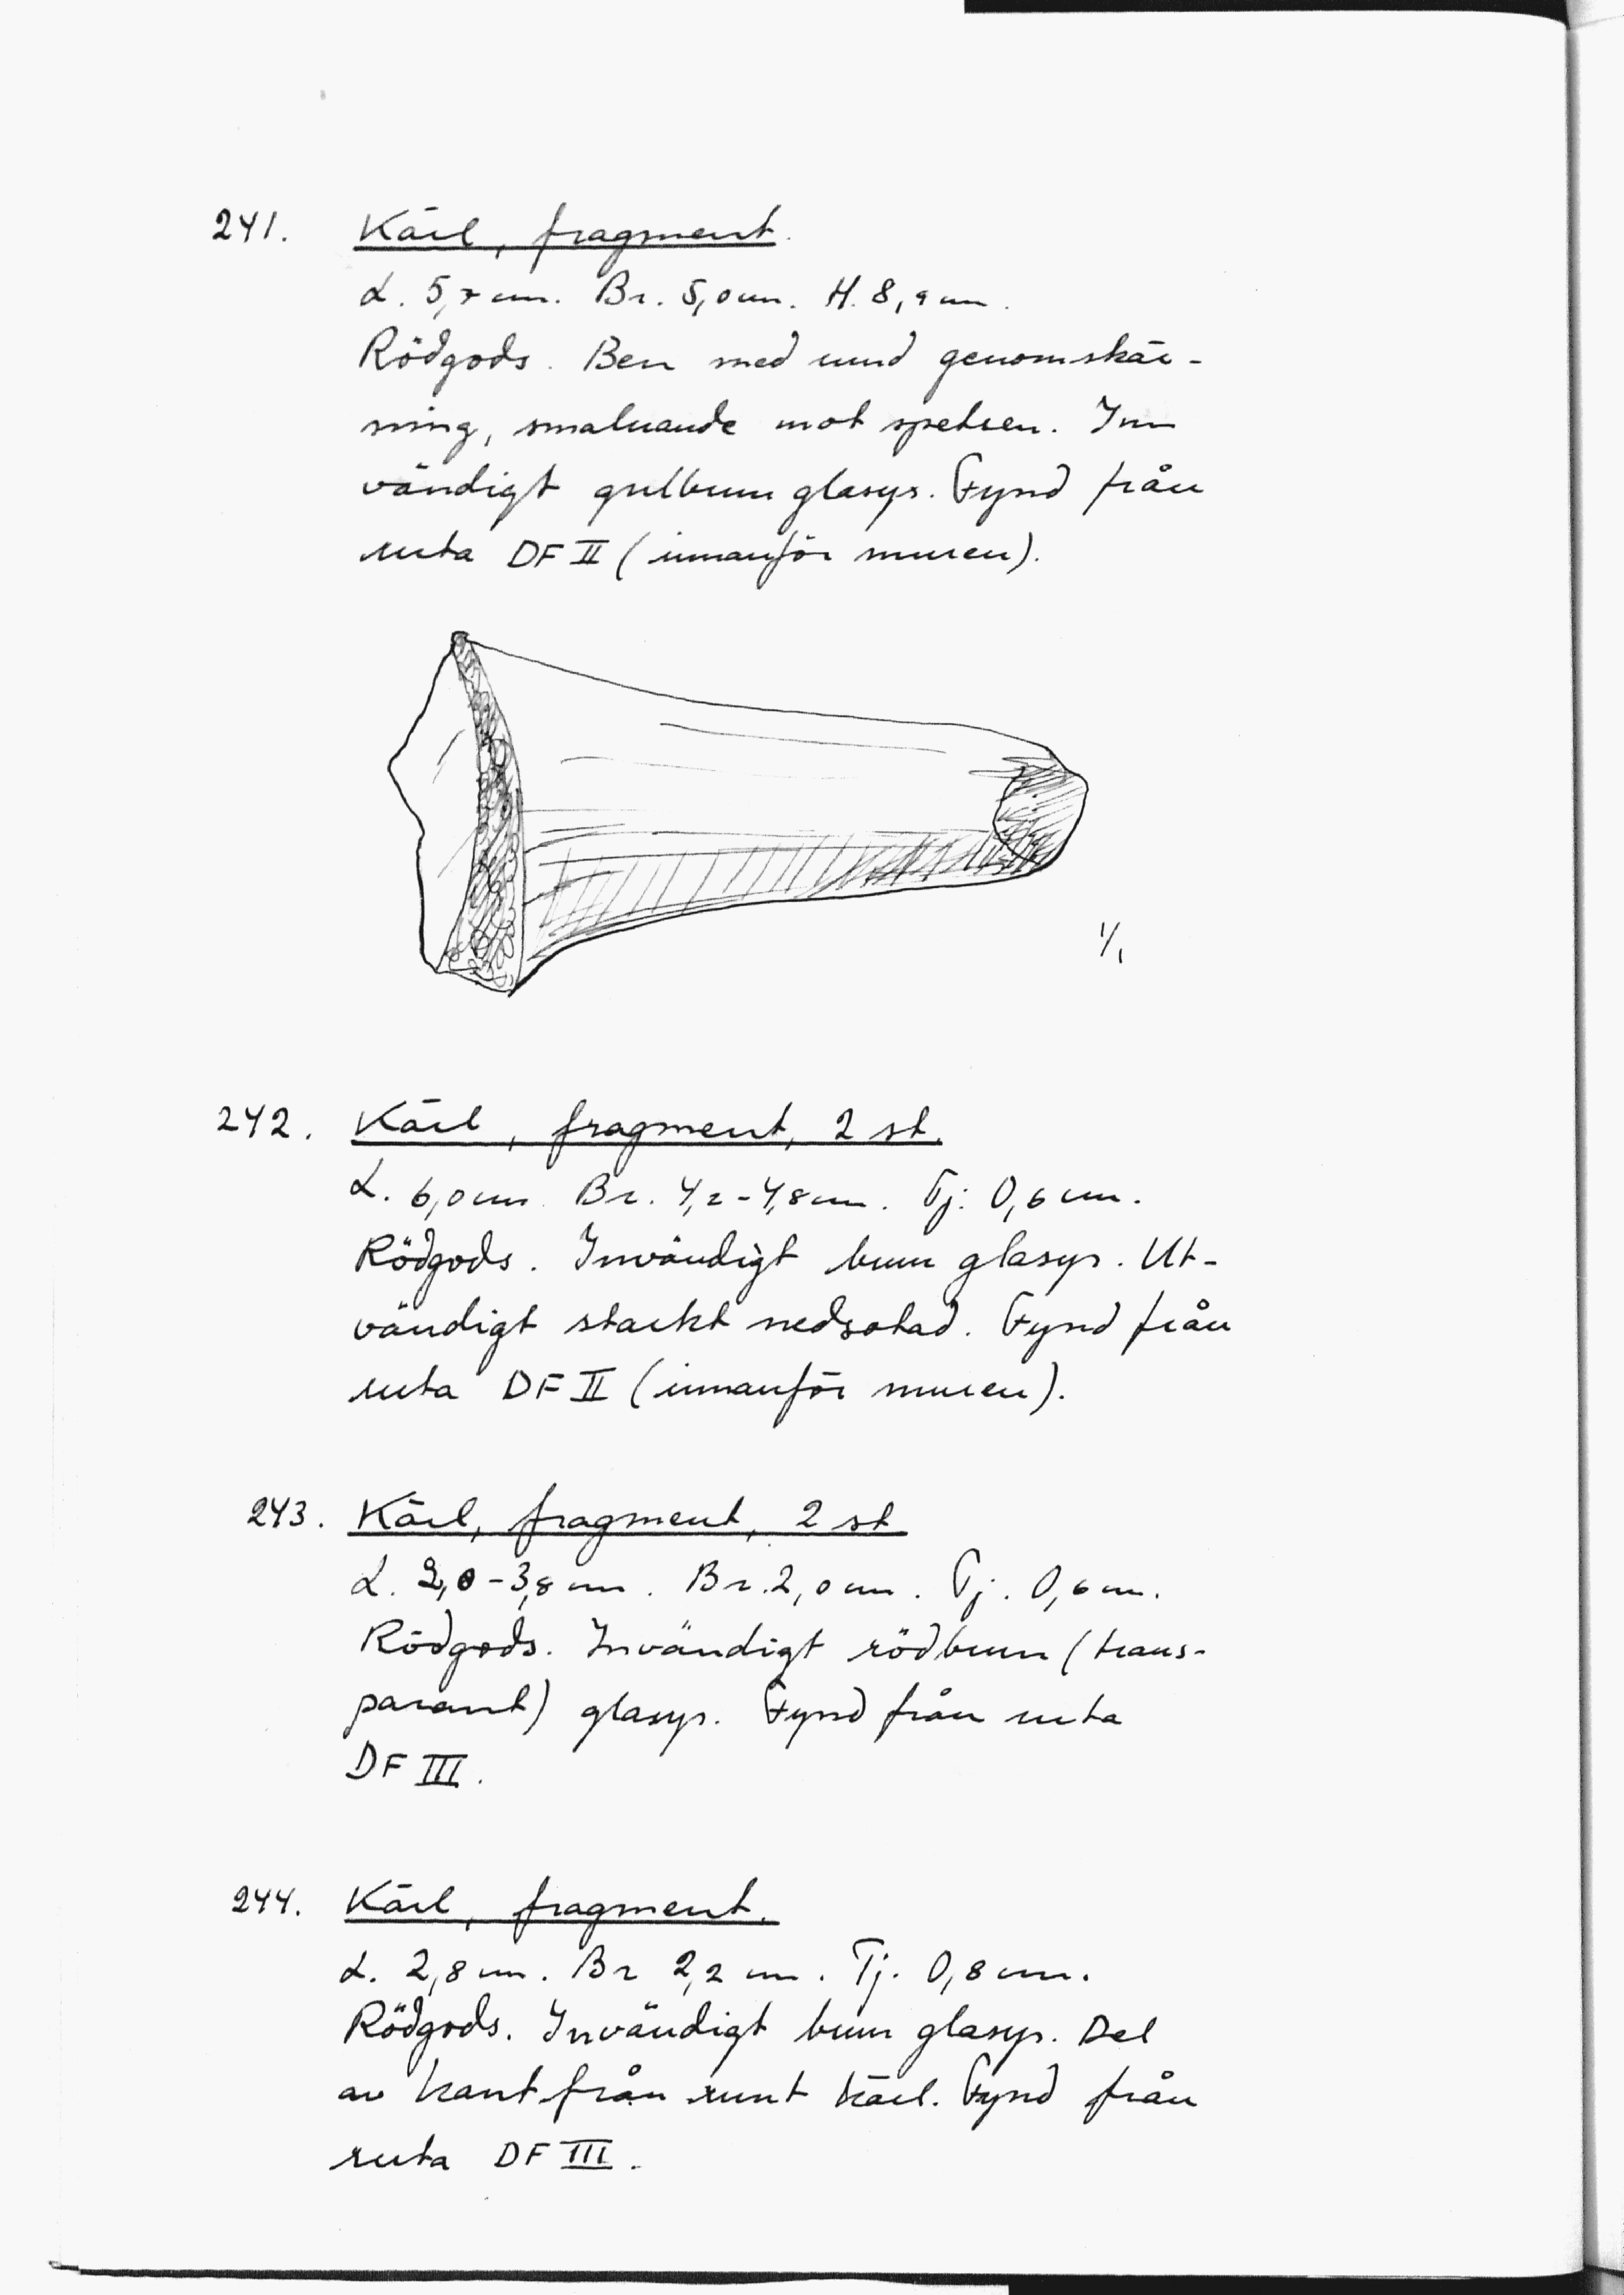 241. Kärl, fragment.
L. 5,7 cm. Br. 5,0 cm. H. 8,9 cm.
Rödgods. Ben med rund genomskär-
ning, smalnande mot spetsen. Inn
vändigt gulbrun glasyr. Fynd från
ruta DF II (innanför muren).
1/1
242. Kärl, fragment, 2 st.
L. 6,0 cm. Br. 4,2-4,8 cm. Tj: 0,6 cm.
Rödgods. Invändigt brun glasyr. Ut-
vändigt starkt nedsotad. Fynd från
ruta DF II (innanför muren).
243. Kärl, fragment, 2 st
L. 2,0-3,8 cm. Br. 2,0 cm. Tj. 0,6 cm.
Rödgods. Invändigt rödbrun (trans-
parant) glasyr. Fynd från ruta
DF III.
244. Kärl, fragment.
L. 2,8 cm. Br 2,2 cm. Tj. 0,8 cm.
Rödgods. Invändigt brun glasyr. Del
av kant från runt kärl. Fynd från
ruta DF III.